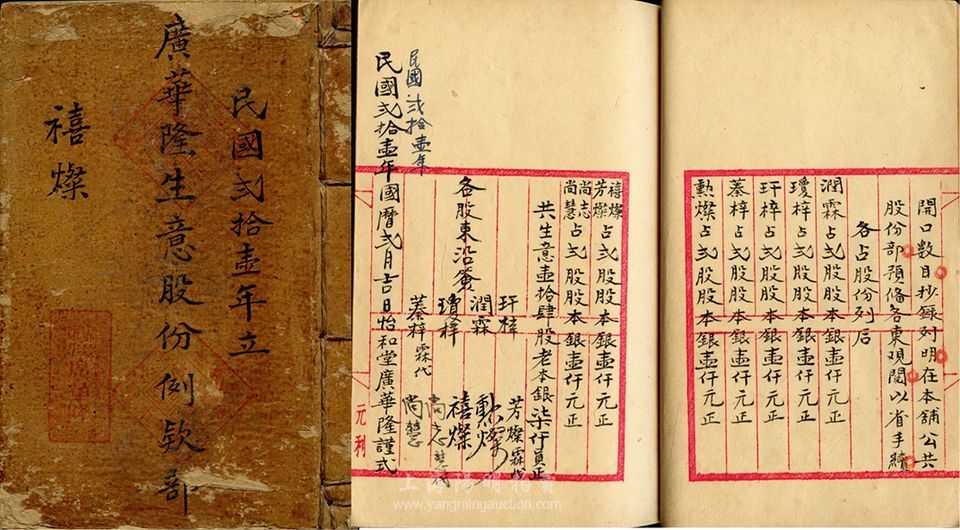 民國弍拾壹年立
廣華隆生意股份例欵部
禧燦
開口數目抄錄列明在本舖公共
股份部預俻各東观閱以省手續
各占股份列后
潤霖占弍股股本銀壹仟元正
瓊梓占弍股股本銀壹仟元正
玕梓占弍股股本銀壹仟元正
蓁梓占弍股股本銀壹仟元正
勲燦占弍股股本銀壹仟元正
禧燦
芳燦占弍股股本銀壹仟元正
尚志
尚慧占弍股股本銀壹仟元正
共生意壹拾肆股老本銀柒仟員正
各股東沿簽
玕梓
潤霖
瓊梓
蓁梓霖代
芳燦霖代
勲燦
禧燦
尚志
尚慧
民國弍拾壹年
民國弍拾壹年國曆弍月吉日怡和堂廣華隆謹弍
元利
www.yangmingauction.com